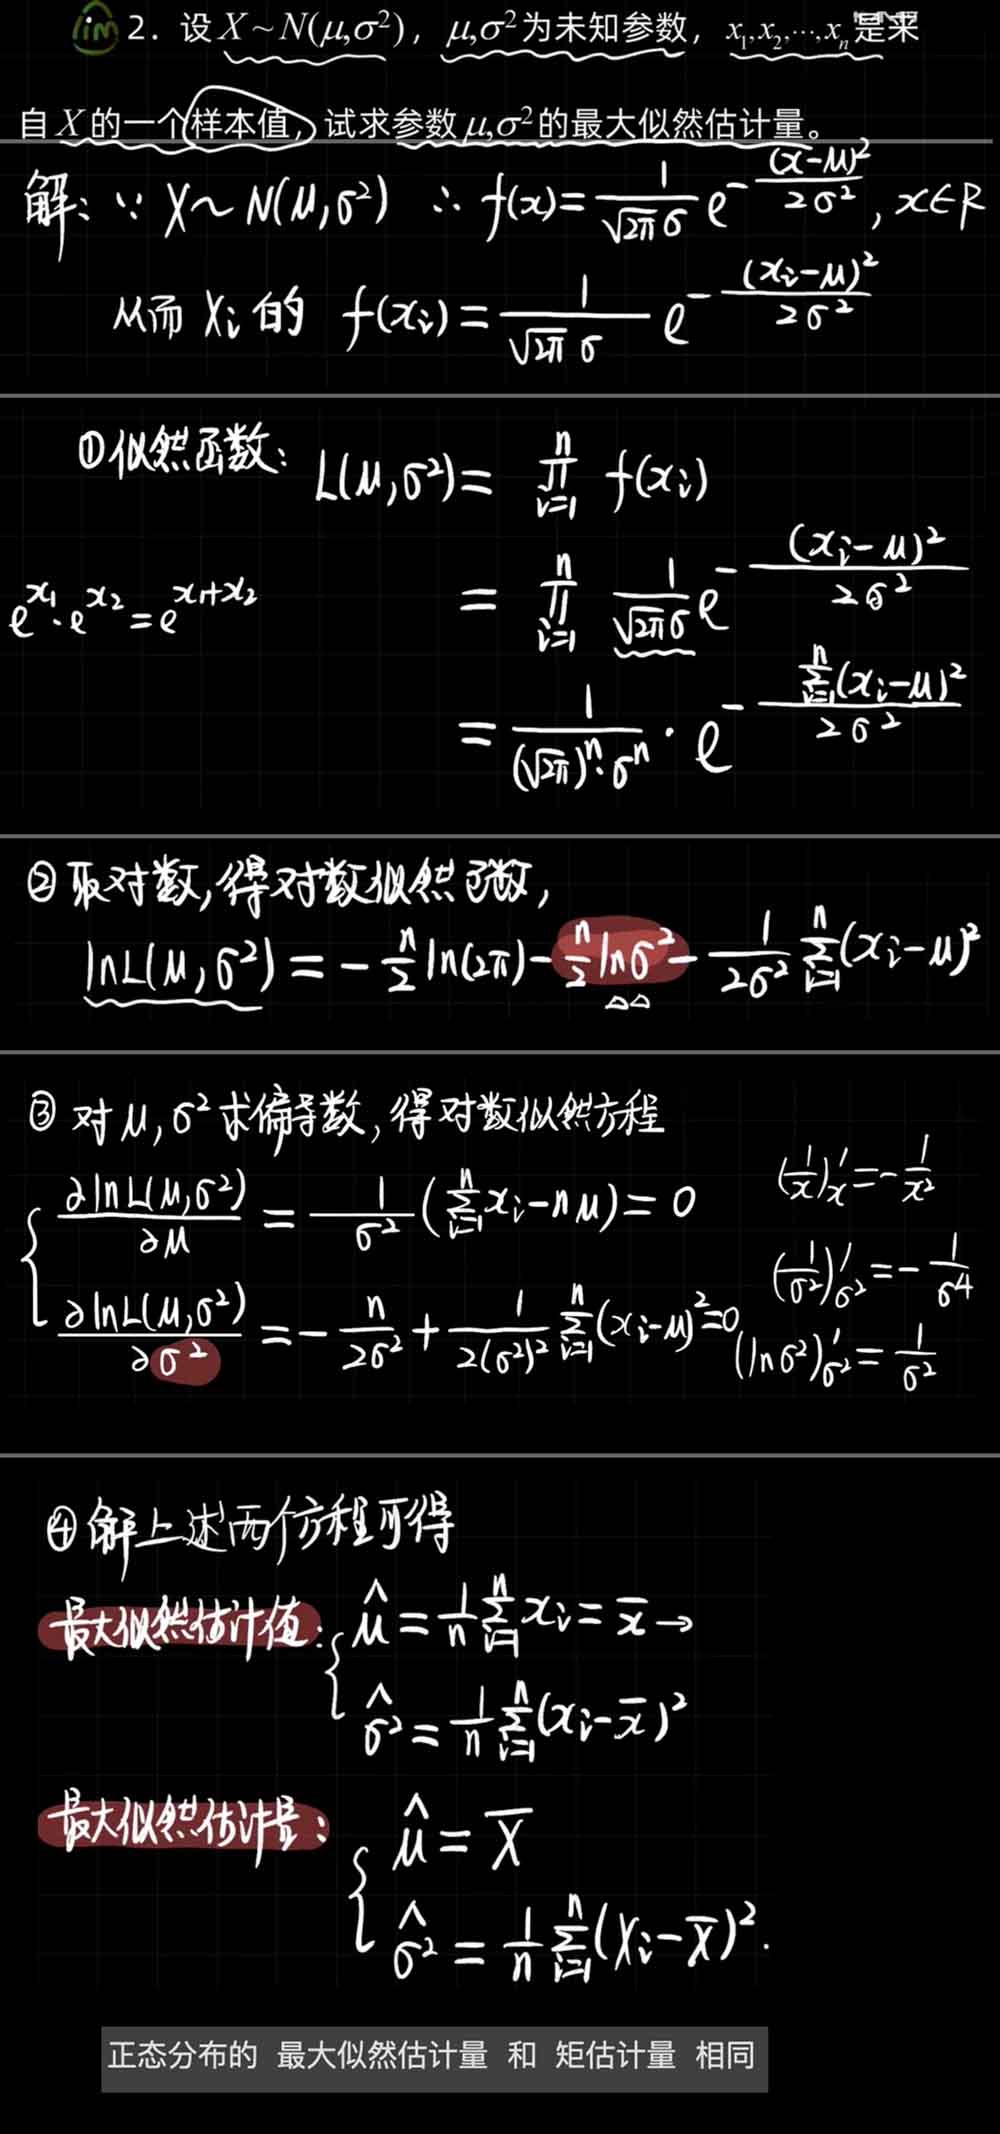 lim 2. 设 X~N(μ,σ²), μ,σ²为未知参数, x₁,x₂,⋯,xₙ是来
自X的一个样本值, 试求参数μ,σ²的最大似然估计量。
解: ∵ X~N(μ,σ²) ∴ f(x)=1/(√2π σ) e^(-(x-μ)²/2σ²), x∈R
从而 Xᵢ 的 f(xᵢ)=1/(√2π σ) e^(-(xᵢ-μ)²/2σ²)
①似然函数: L(μ,σ²)= ∏ᵢ₌₁ⁿ f(xᵢ)
= ∏ᵢ₌₁ⁿ 1/(√2π σ) e^(-(xᵢ-μ)²/2σ²)
e^x₁·e^x₂=e^(x₁+x₂)
= 1/((√2π)ⁿ·σⁿ) · e^(-∑ᵢ₌₁ⁿ(xᵢ-μ)²/2σ²)
②取对数,得对数似然函数,
lnL(μ,σ²) = -n/2 ln(2π) - n/2 lnσ² - 1/2σ² ∑ᵢ₌₁ⁿ(xᵢ-μ)²
③ 对μ,σ²求偏导数,得对数似然方程
∂lnL(μ,σ²)/∂μ = 1/σ² (∑ᵢ₌₁ⁿxᵢ-nμ)=0
(1/x)'ₓ=-1/x²
∂lnL(μ,σ²)/∂σ² = -n/2σ² + 1/2(σ²)² ∑ᵢ₌₁ⁿ(xᵢ-μ)²=0
(1/σ²)'_σ²=-1/σ⁴
(lnσ²)'_σ²=1/σ²
④解上述两个方程可得
最大似然估计值: μ̂=1/n ∑ᵢ₌₁ⁿxᵢ=x̄→
σ̂²=1/n ∑ᵢ₌₁ⁿ(xᵢ-x̄)²
最大似然估计量: μ̂=X̄
σ̂²=1/n ∑ᵢ₌₁ⁿ(Xᵢ-X̄)².
正态分布的 最大似然估计量 和 矩估计量 相同